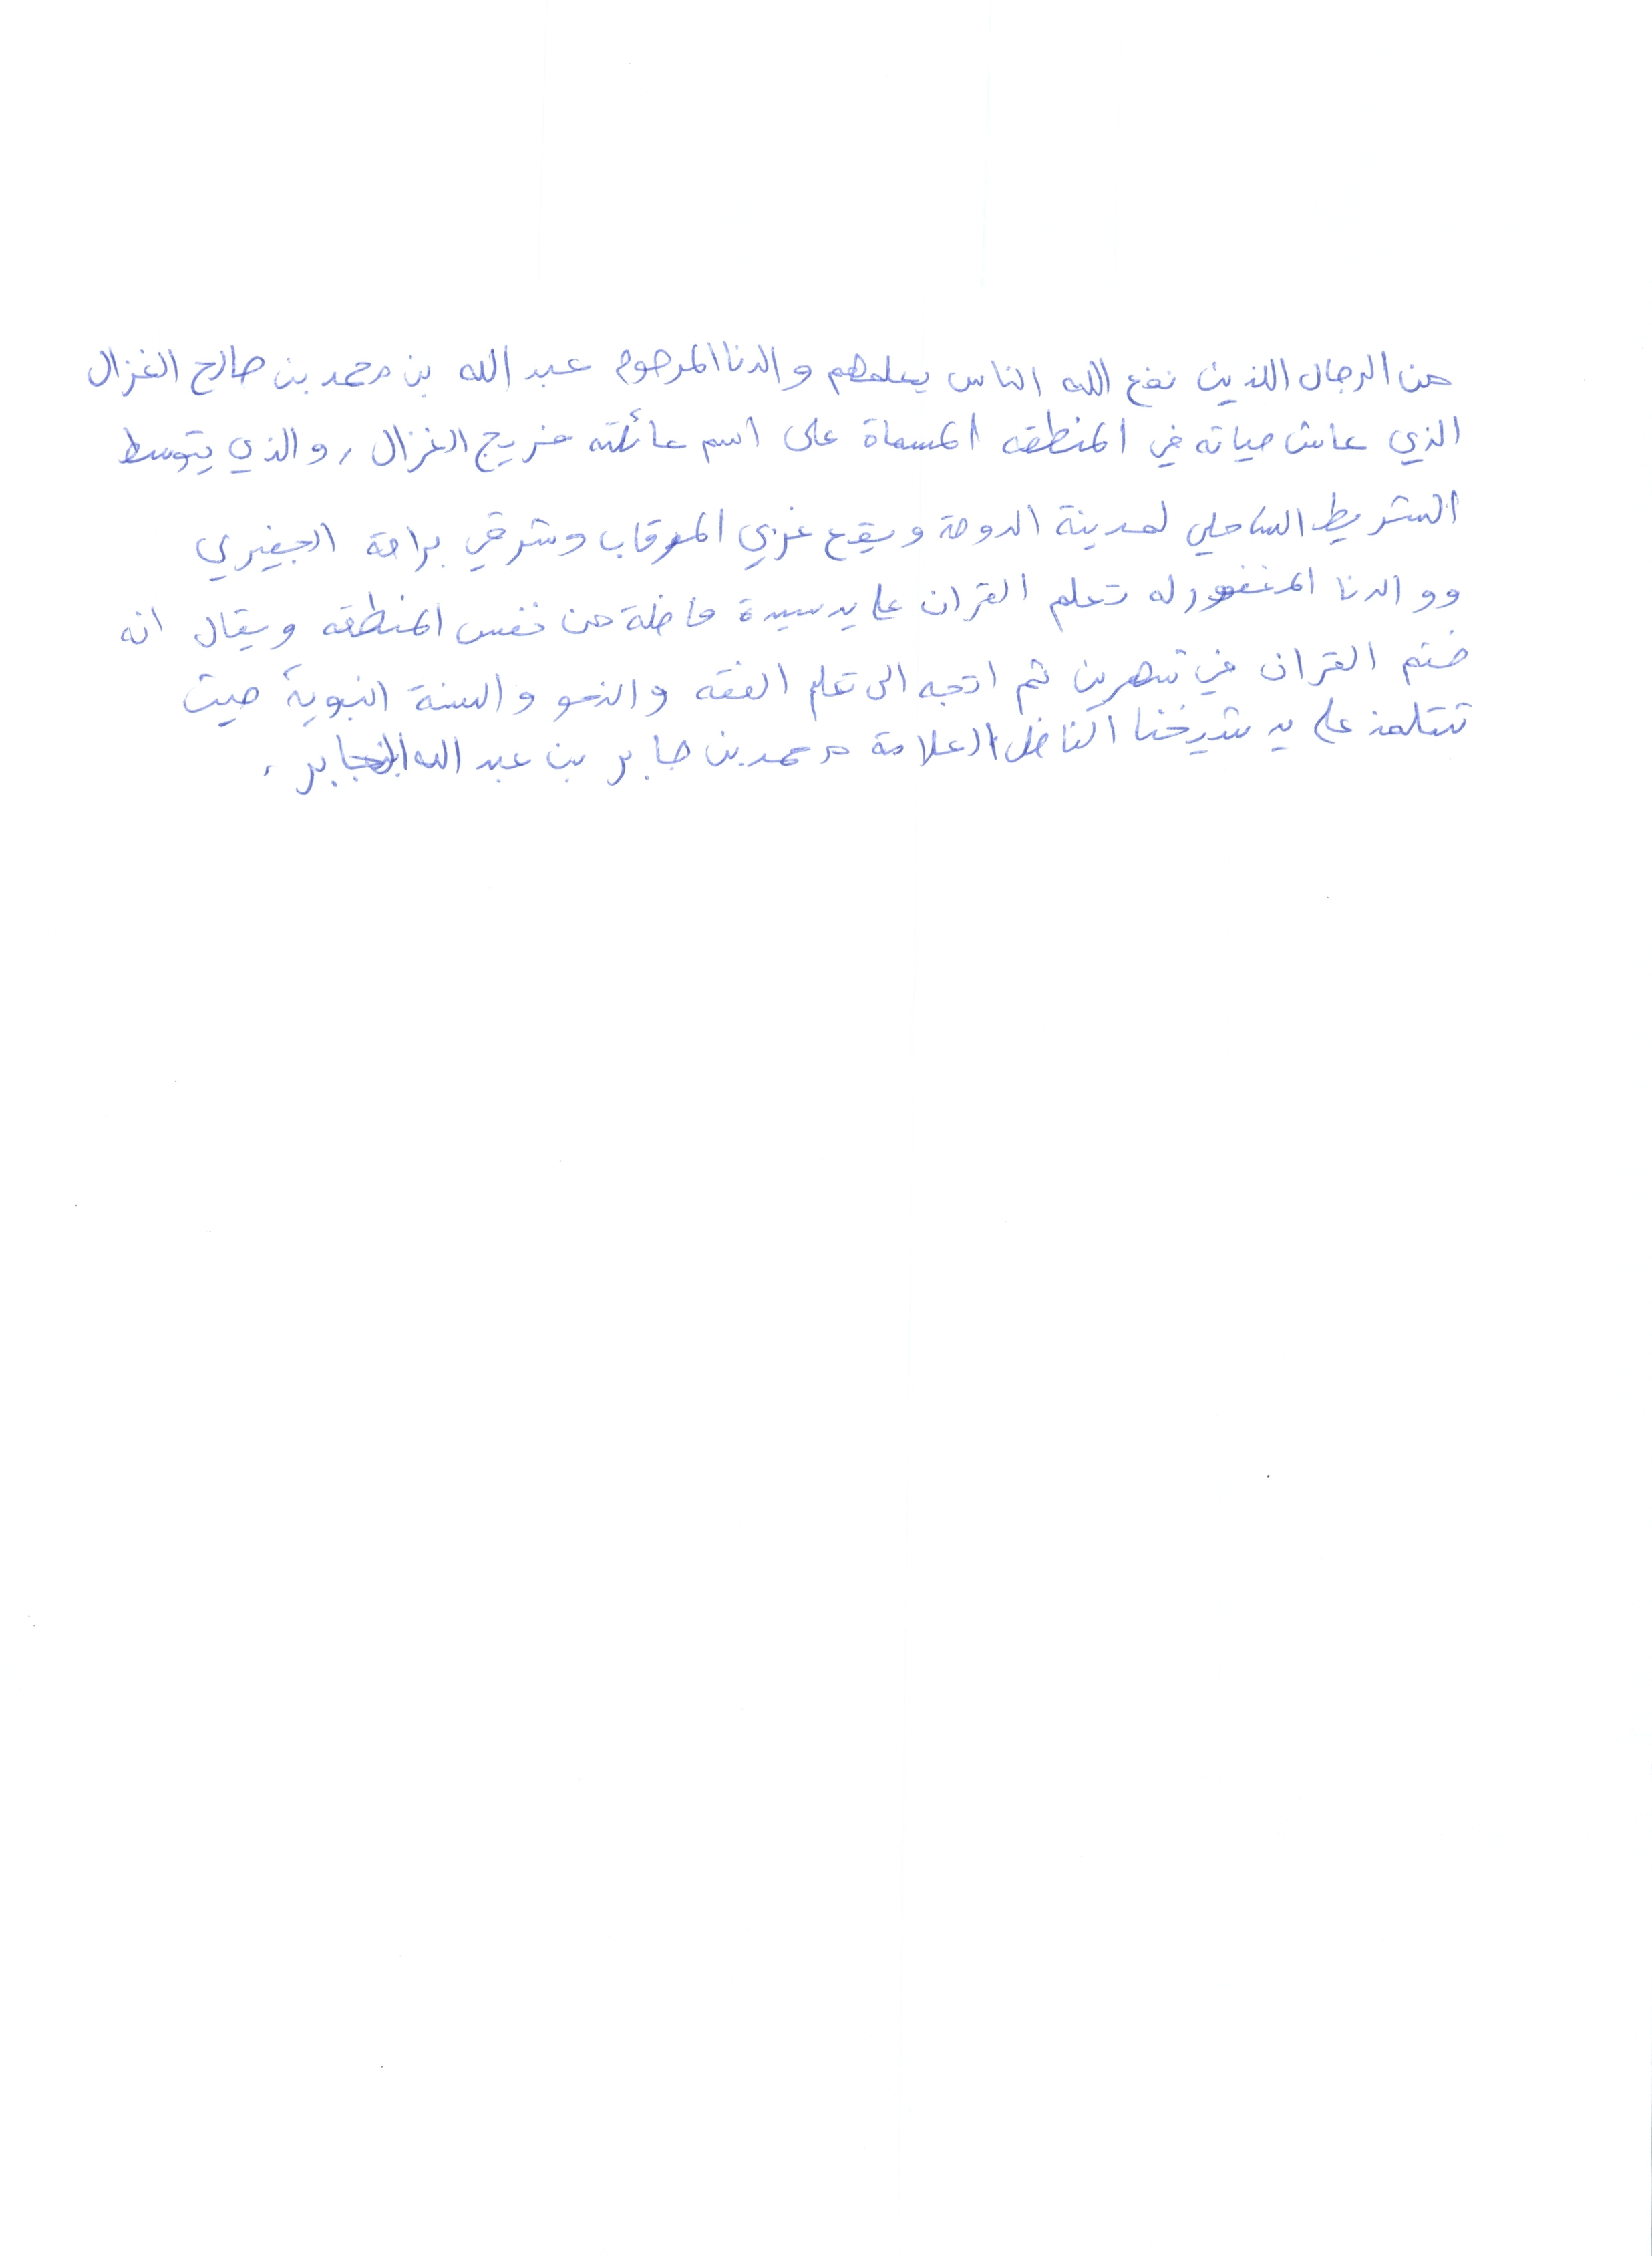 من الرجال اللذين نفع الله الناس بعلمهم والدنا المرحوم عبد الله بن محمد بن صالح الغزال
الذي عاش حياته في المنطقه المسماة على اسم عائلته فريج الغزال , والذي يتوسط
الشريط الساحلي لمدينة الدوحة ويقع غربي المرقاب وشرقي براحة الجفيري
ووالدنا المغفور له تعلم القران على يد سيدة فاضلة من نفس المنطقه ويقال انه
ختم القران في شهرين ثم اتجه الى تعلم الفقه والنحو والسنة النبوية حيث
تتلمذ على يد شيخنا الفاضل العلامة محمد بن جابر بن عبد الله الجابر .